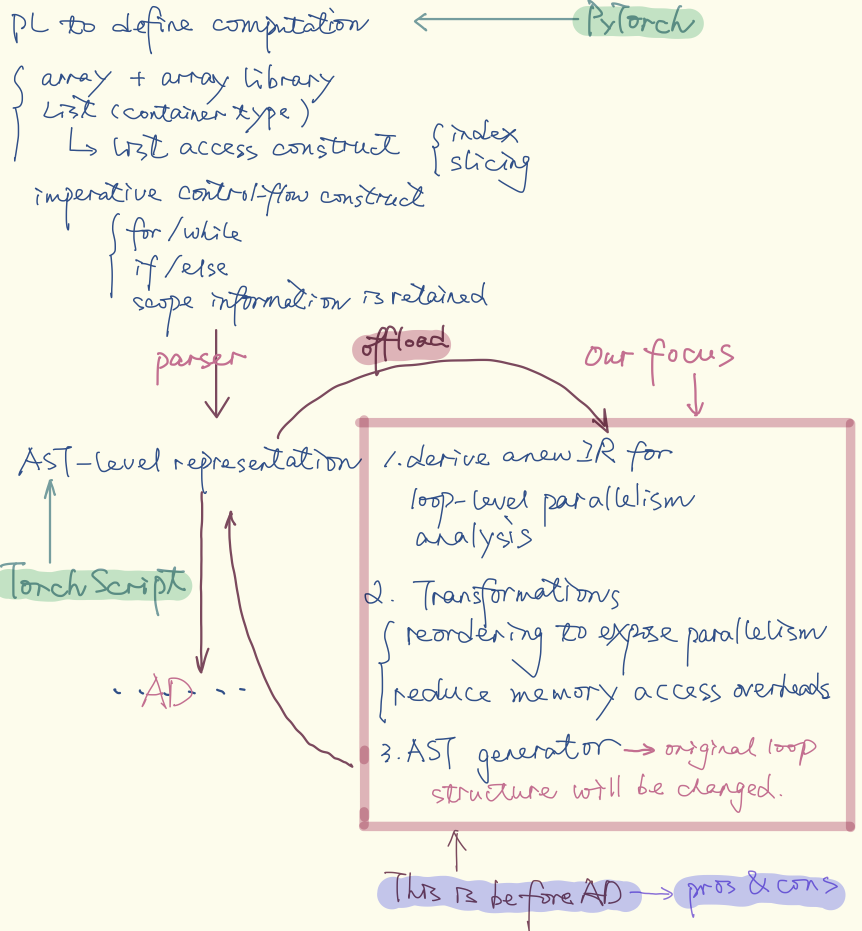 PL to define computation
PyTorch
array + array library
List (container type)
List access construct
index
slicing
imperative control-flow construct
for/while
if/else
scope information is retained
parser
offload
Our focus
AST-level representation
1. derive a new IR for
loop-level parallelism
analysis
TorchScript
2. Transformations
reordering to expose parallelism
reduce memory access overheads
. . AD . . .
3. AST generator → original loop
structure will be changed.
This is before AD → pros & cons